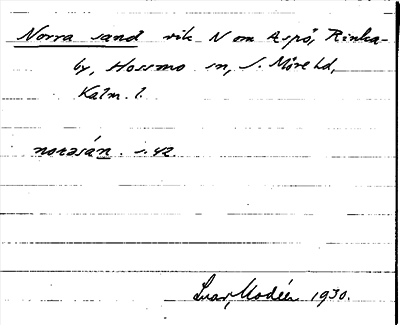 Norra sand vik N om Aspö, Rinka-
by, Hossmo sn, S. Möre hd,
Kalm. l.
norasán. s. 42.
Ivar Modéer 1930.